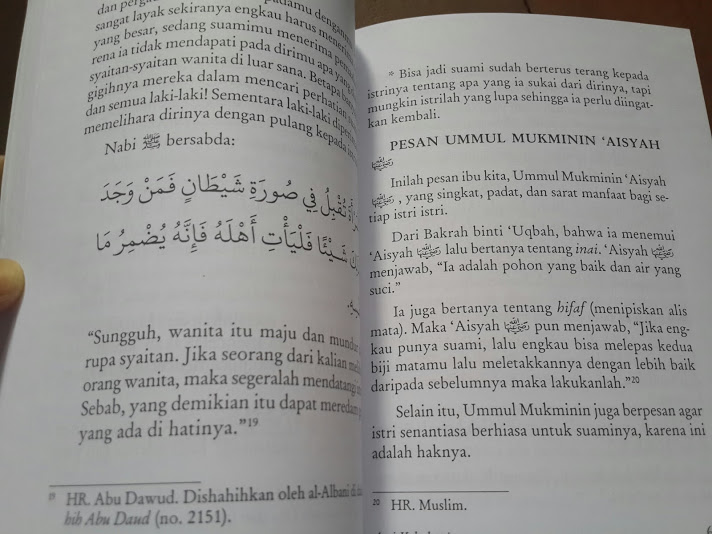 dan perga
padamu dengan
sangat layak sekiranya engkau harus menerim
yang besar, sedang suamimu menerima
rena ia tidak mendapati pada dirimu apa yang
syaitan-syaitan wanita di luar sana. Betapa
gigihnya mereka dalam mencari perhatian
dan semua laki-laki! Sementara laki-laki
memelihara dirinya dengan pulang kepada
Nabi ﷺ bersabda:
تُقْبِلُ فِي صُورَةِ شَيْطَانٍ فَمَنْ وَجَدَ
شَيْئًا فَلْيَأْتِ أَهْلَهُ فَإِنَّهُ يُضْمِرُ مَا
“Sungguh, wanita itu maju dan mundur
rupa syaitan. Jika seorang dari kalian
orang wanita, maka segeralah mendatangi
Sebab, yang demikian itu dapat meredam
yang ada di hatinya.”19
19 HR. Abu Dawud. Dishahihkan oleh al-Albani
hih Abu Daud (no. 2151).
* Bisa jadi suami sudah berterus terang kepada
istrinya tentang apa yang ia sukai dari dirinya, tapi
mungkin istrilah yang lupa sehingga ia perlu diingat-
kan kembali.
PESAN UMMUL MUKMININ ‘AISYAH
Inilah pesan ibu kita, Ummul Mukminin ‘Aisyah
, yang singkat, padat, dan sarat manfaat bagi se-
tiap istri istri.
Dari Bakrah binti ‘Uqbah, bahwa ia menemui
‘Aisyah lalu bertanya tentang inai. ‘Aisyah
menjawab, “Ia adalah pohon yang baik dan air yang
suci.”
Ia juga bertanya tentang hifaf (menipiskan alis
mata). Maka ‘Aisyah pun menjawab, “Jika eng-
kau punya suami, lalu engkau bisa melepas kedua
biji matamu lalu meletakkannya dengan lebih baik
daripada sebelumnya maka lakukanlah.”20
Selain itu, Ummul Mukminin juga berpesan agar
istri senantiasa berhias untuk suaminya, karena ini
adalah haknya.
20 HR. Muslim.